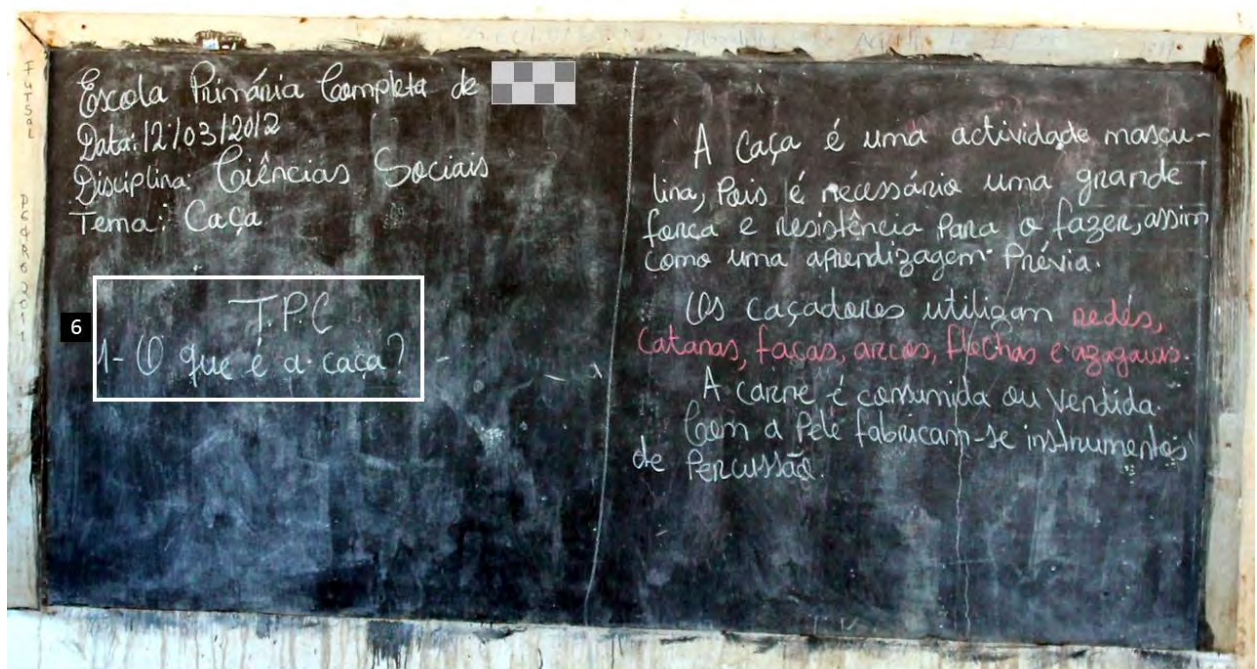 Escola Primária Completa de
Data: 12/03/2012
Disciplina: Ciências Sociais
Tema: Caça
6
T.P.C
1- O que é a caça?
A caça é uma actividade mascu-
lina, Pois é necessário uma grande
força e resistência Para o fazer, assim
como uma aprendizagem Prévia.
Os caçadores utilizam redes,
Catanas, facas, arcos, flechas e azagaias.
A carne é consumida ou vendida.
Com a Pele fabricam-se instrumentos
de Percussão.
FUTSOL